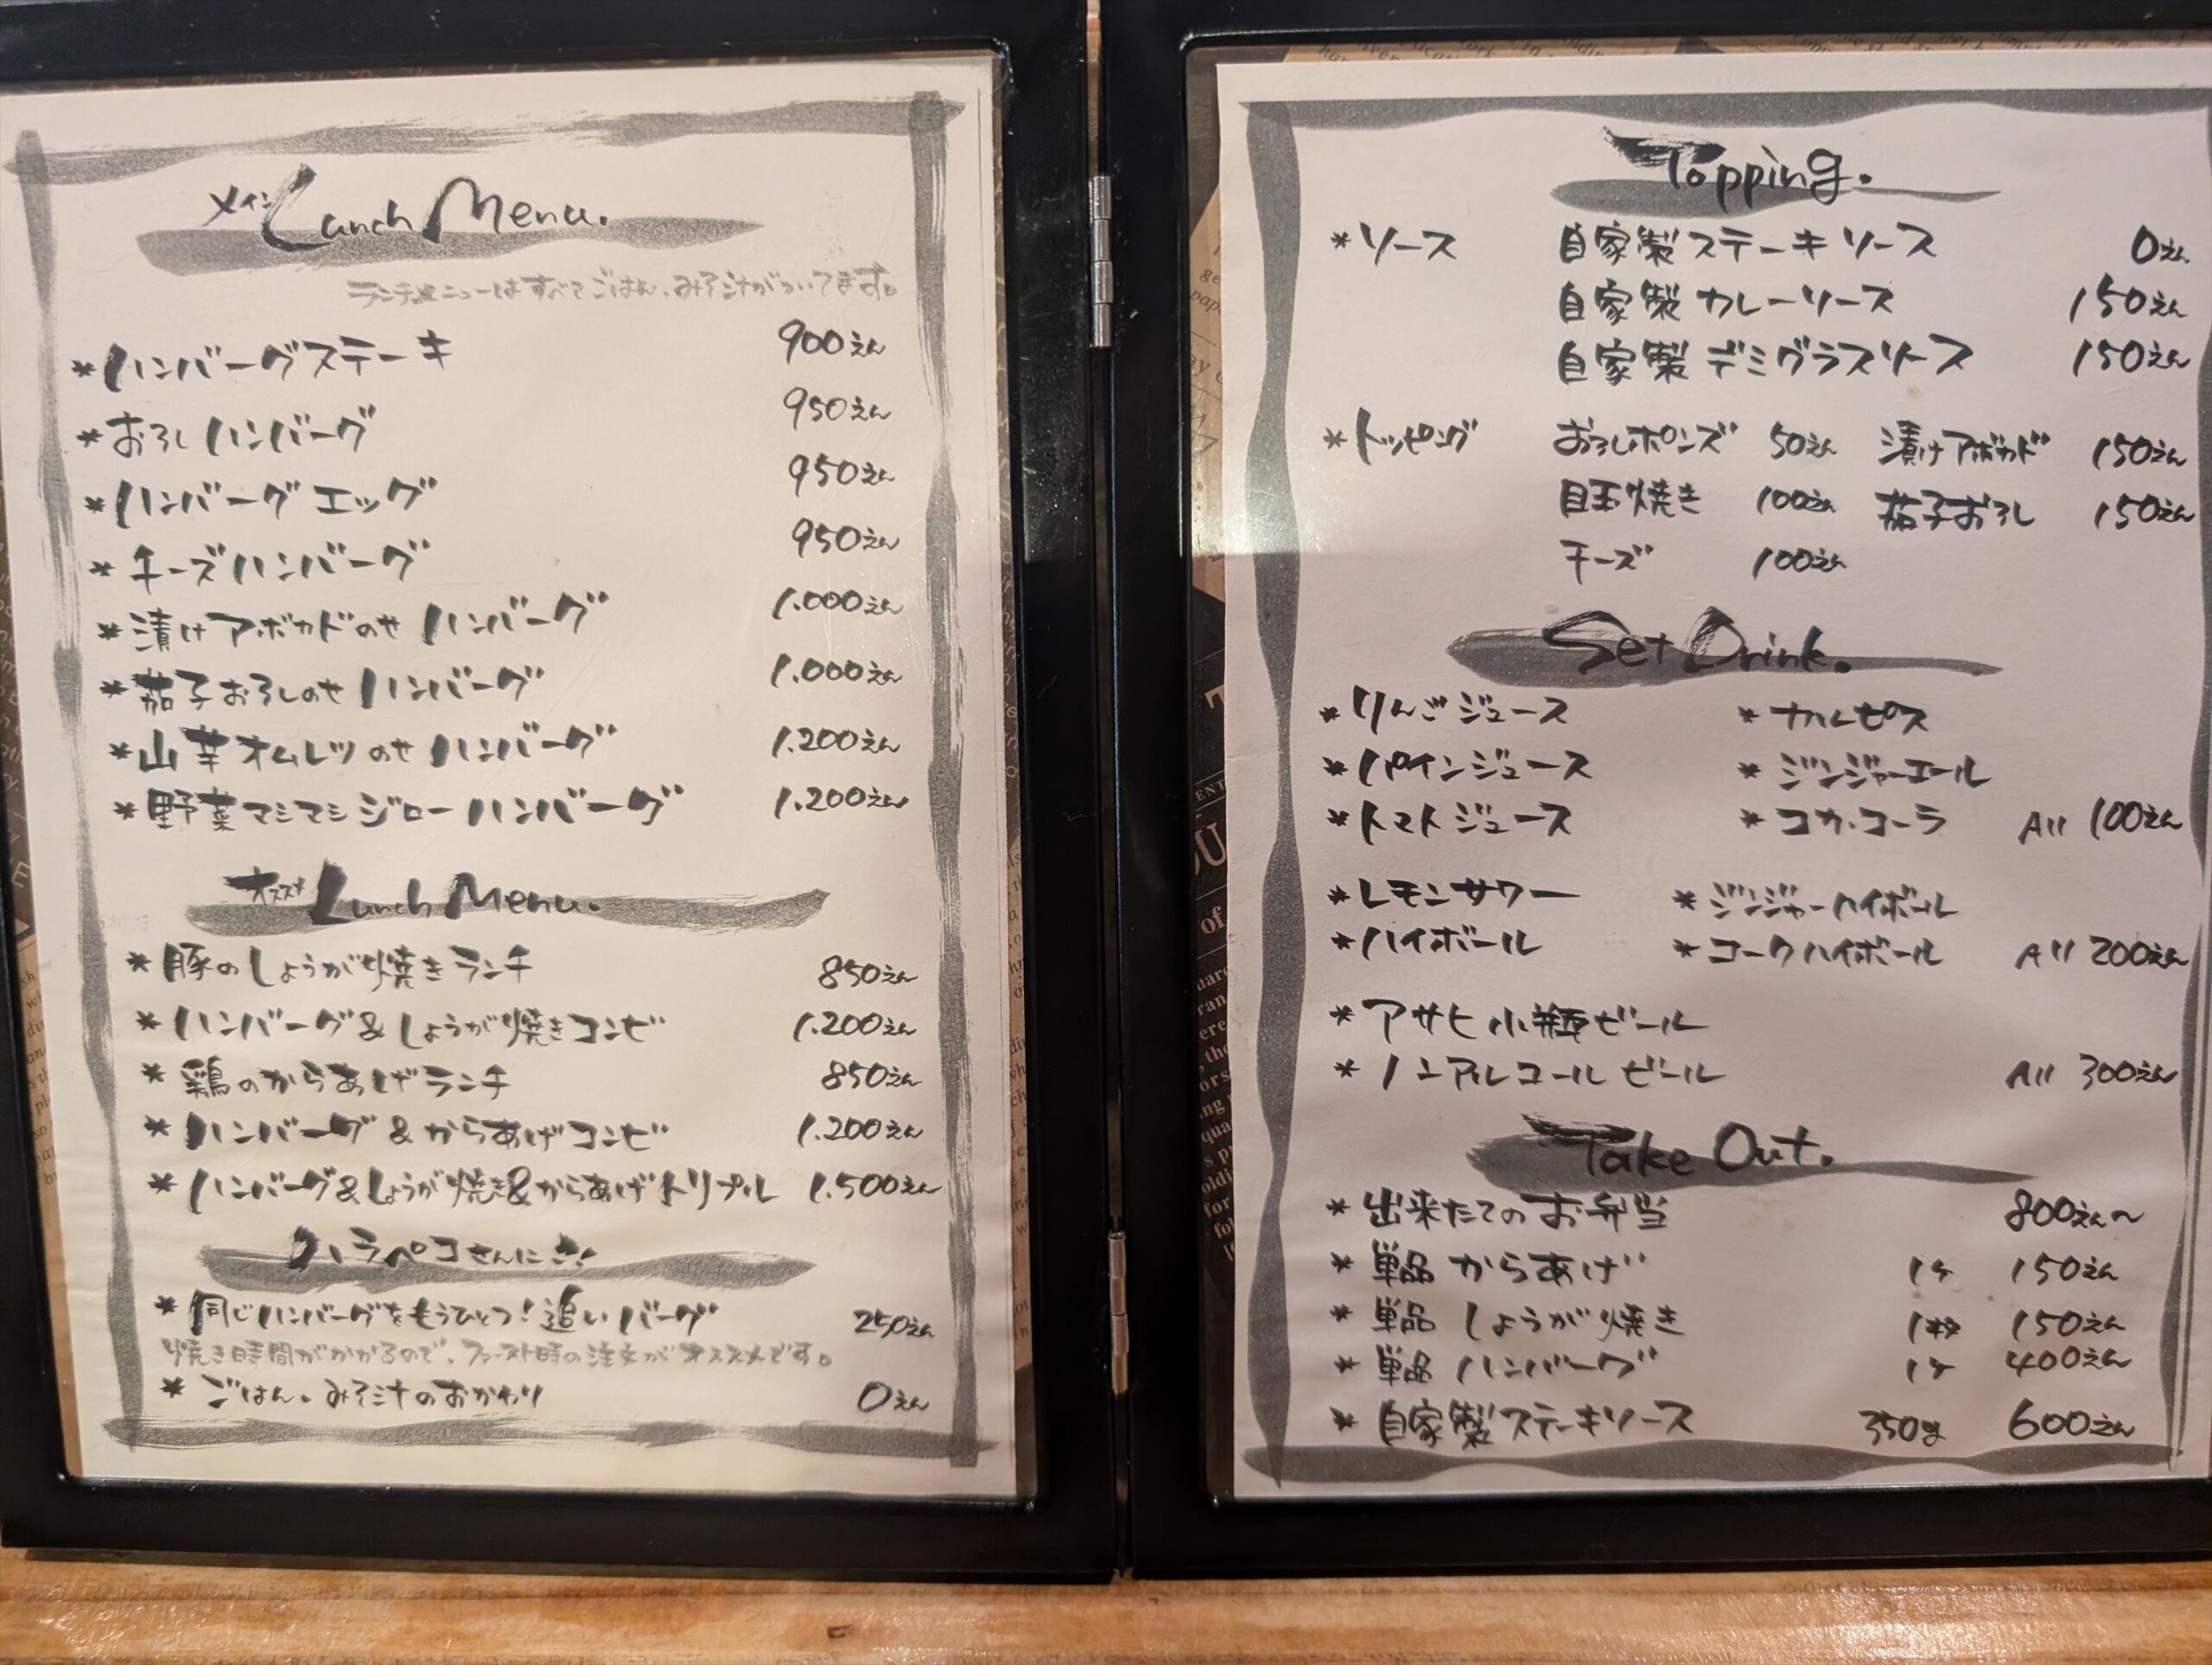 メイン Lunch Menu.
ランチメニューはすべてごはん、みそ汁がついてます。
*ハンバーグステーキ 900えん
*おろしハンバーグ 950えん
*ハンバーグエッグ 950えん
*チーズハンバーグ 950えん
*漬けアボカドのせハンバーグ 1.000えん
*茄子おろしのせハンバーグ 1.000えん
*山芋オムレツのせハンバーグ 1.200えん
*野菜マシマシジローハンバーグ 1.200えん
オススメ Lunch Menu.
*豚のしょうが焼きランチ 850えん
*ハンバーグ&しょうが焼きコンビ 1.200えん
*鶏のからあげランチ 850えん
*ハンバーグ&からあげコンビ 1.200えん
*ハンバーグ&しょうが焼き&からあげトリプル 1.500えん
ハラペコさんにさ!
*同じハンバーグをもうひとつ!追いバーグ 250えん
焼き時間がかかるので、ファースト時の注文がオススメです。
*ごはん、みそ汁のおかわり 0えん
Topping.
*ソース 自家製ステーキソース 0えん
自家製カレーソース 150えん
自家製デミグラスソース 150えん
*トッピング おろしポンズ 50えん 漬けアボカド 150えん
目玉焼き 100えん 茄子おろし 150えん
チーズ 100えん
Set Drink.
*りんごジュース *カルピス
*パインジュース *ジンジャーエール
*トマトジュース *コカ・コーラ All 100えん
*レモンサワー *ジンジャーハイボール
*ハイボール *コークハイボール All 200えん
*アサヒ小瓶ビール
*ノンアルコールビール All 300えん
Take Out.
*出来たてのお弁当 800えん〜
*単品 からあげ 1ヶ 150えん
*単品 しょうが焼き 1枚 150えん
*単品 ハンバーグ 1ヶ 400えん
*自家製ステーキソース 350g 600えん